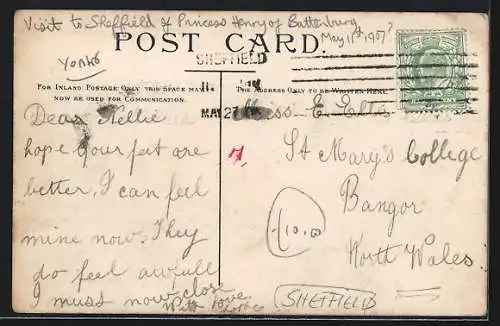 Visit to Sheffield of Princess Henry of Battenburg
May 11th 1907?
POST CARD.
Yorks
SHEFFIELD
FOR INLAND POSTAGE ONLY THIS SPACE MAY
NOW BE USED FOR COMMUNICATION.
THE ADDRESS ONLY TO BE WRITTEN HERE.
MAY 27
Dear Nellie
hope your feet are
better. I can feel
mine now. They
do feel awfull
I must now close
With love
Miss E. Ellis
St Mary's College
Bangor
North Wales
£10.00
SHEFFIELD